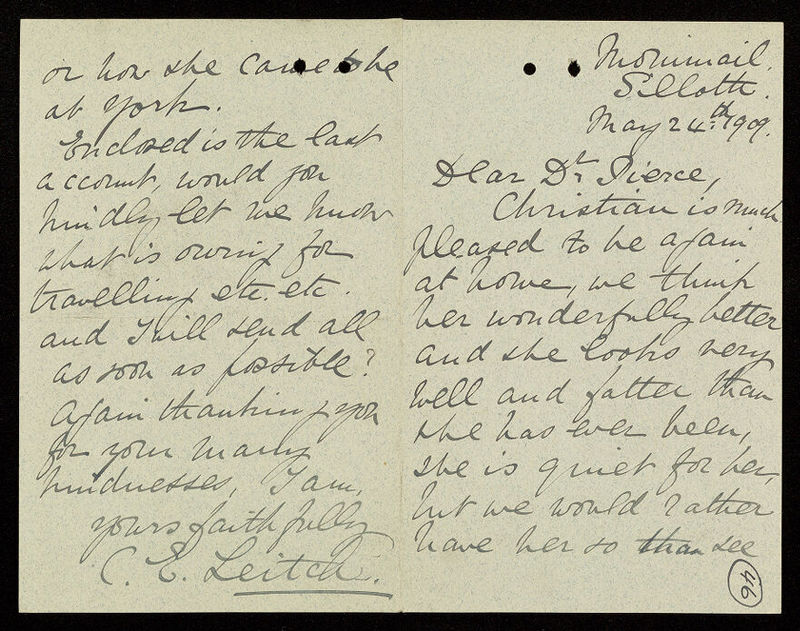 Monimail.
Silloth.
May 24th 1909.
Dear Dr. Pierce,
Christian is much
pleased to be again
at home, we think
her wonderfully better
and she looks very
well and fatter than
she has ever been,
she is quiet for her,
but we would rather
have her so than see
46
or how she came to be
at York.
Enclosed is the last
account, would you
kindly let me know
what is owing for
travelling etc. etc.
and I will send all
as soon as possible?
Again thanking you
for your many
kindnesses, I am,
yours faithfully
C. E. Leitch.